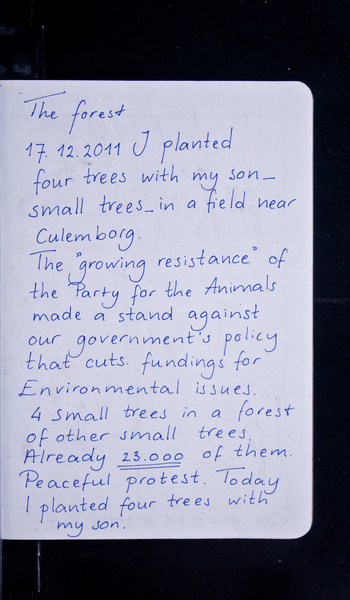 The forest
17.12.2011 I planted
four trees with my son_
small trees_in a field near
Culemborg.
The "growing resistance" of
the Party for the Animals
made a stand against
our government's policy
that cuts. fundings for
Environmental issues.
4 small trees in a forest
of other small trees.
Already 23.000 of them.
Peaceful protest. Today
I planted four trees with
my son.